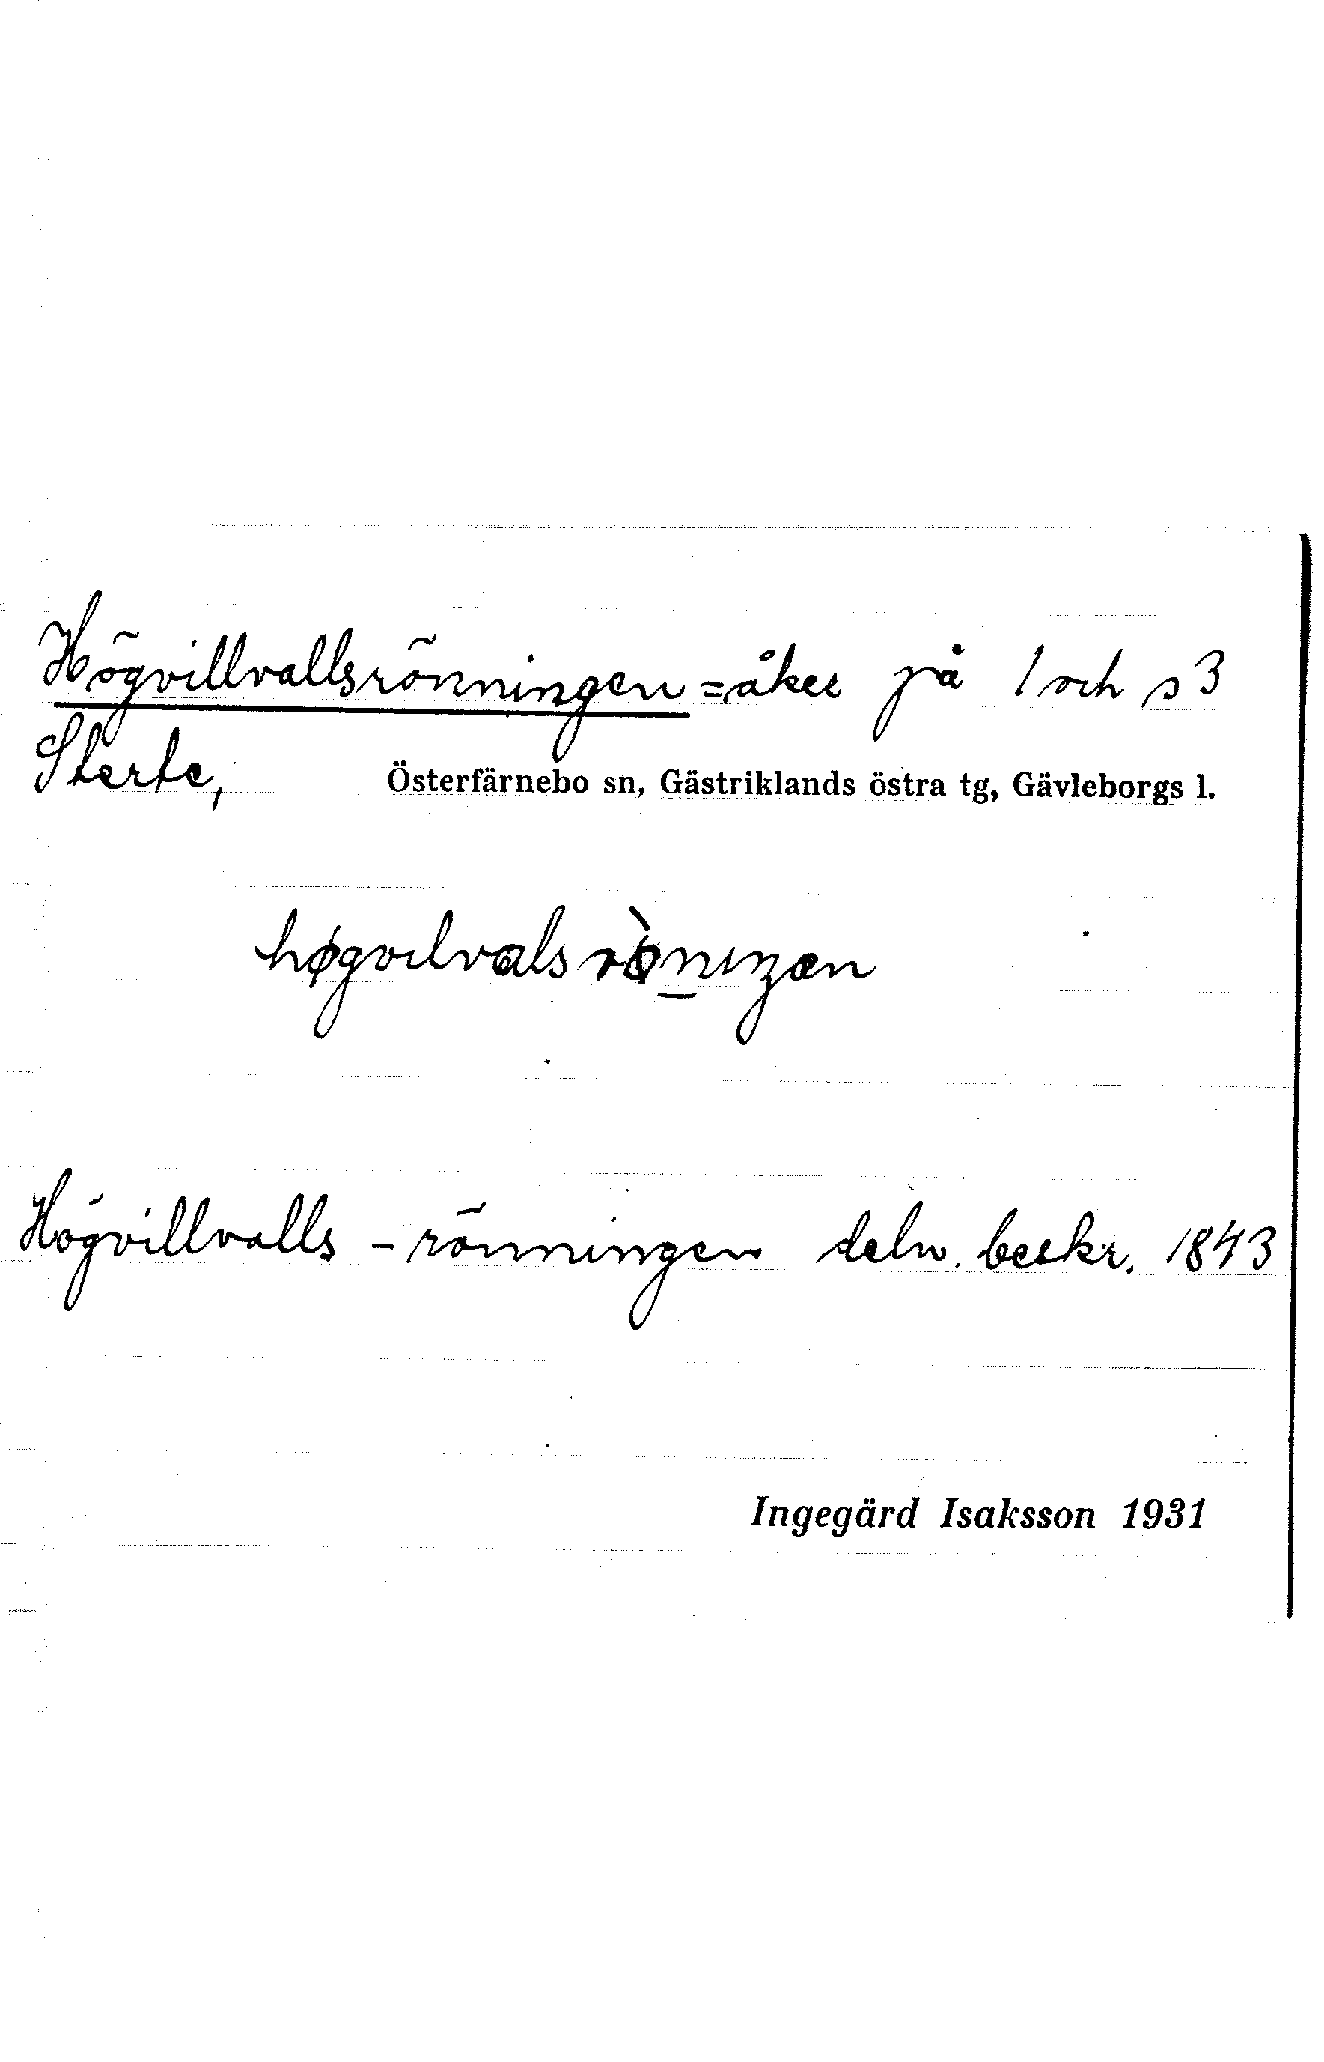 Högvillvallsrönningen = åker på 1 och s 3
Sterte, Österfärnebo sn, Gästriklands östra tg, Gävleborgs l.
høgvılvalsrø̀nıŋæn
Högvillvalls - rönningen deln. beskr. 1843
Ingegärd Isaksson 1931